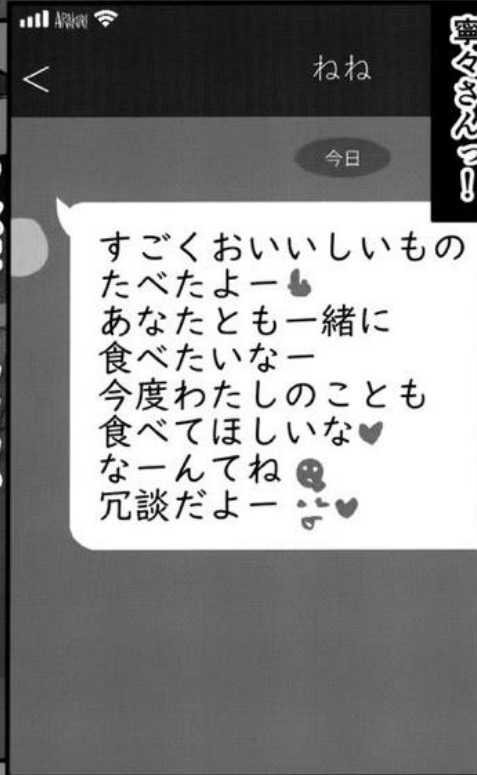 寧々さんっ!
ARAKURE
<
ねね
今日
すごくおいいしいもの
たべたよー
あなたとも一緒に
食べたいなー
今度わたしのことも
食べてほしいな♥
なーんてね
冗談だよー ♥